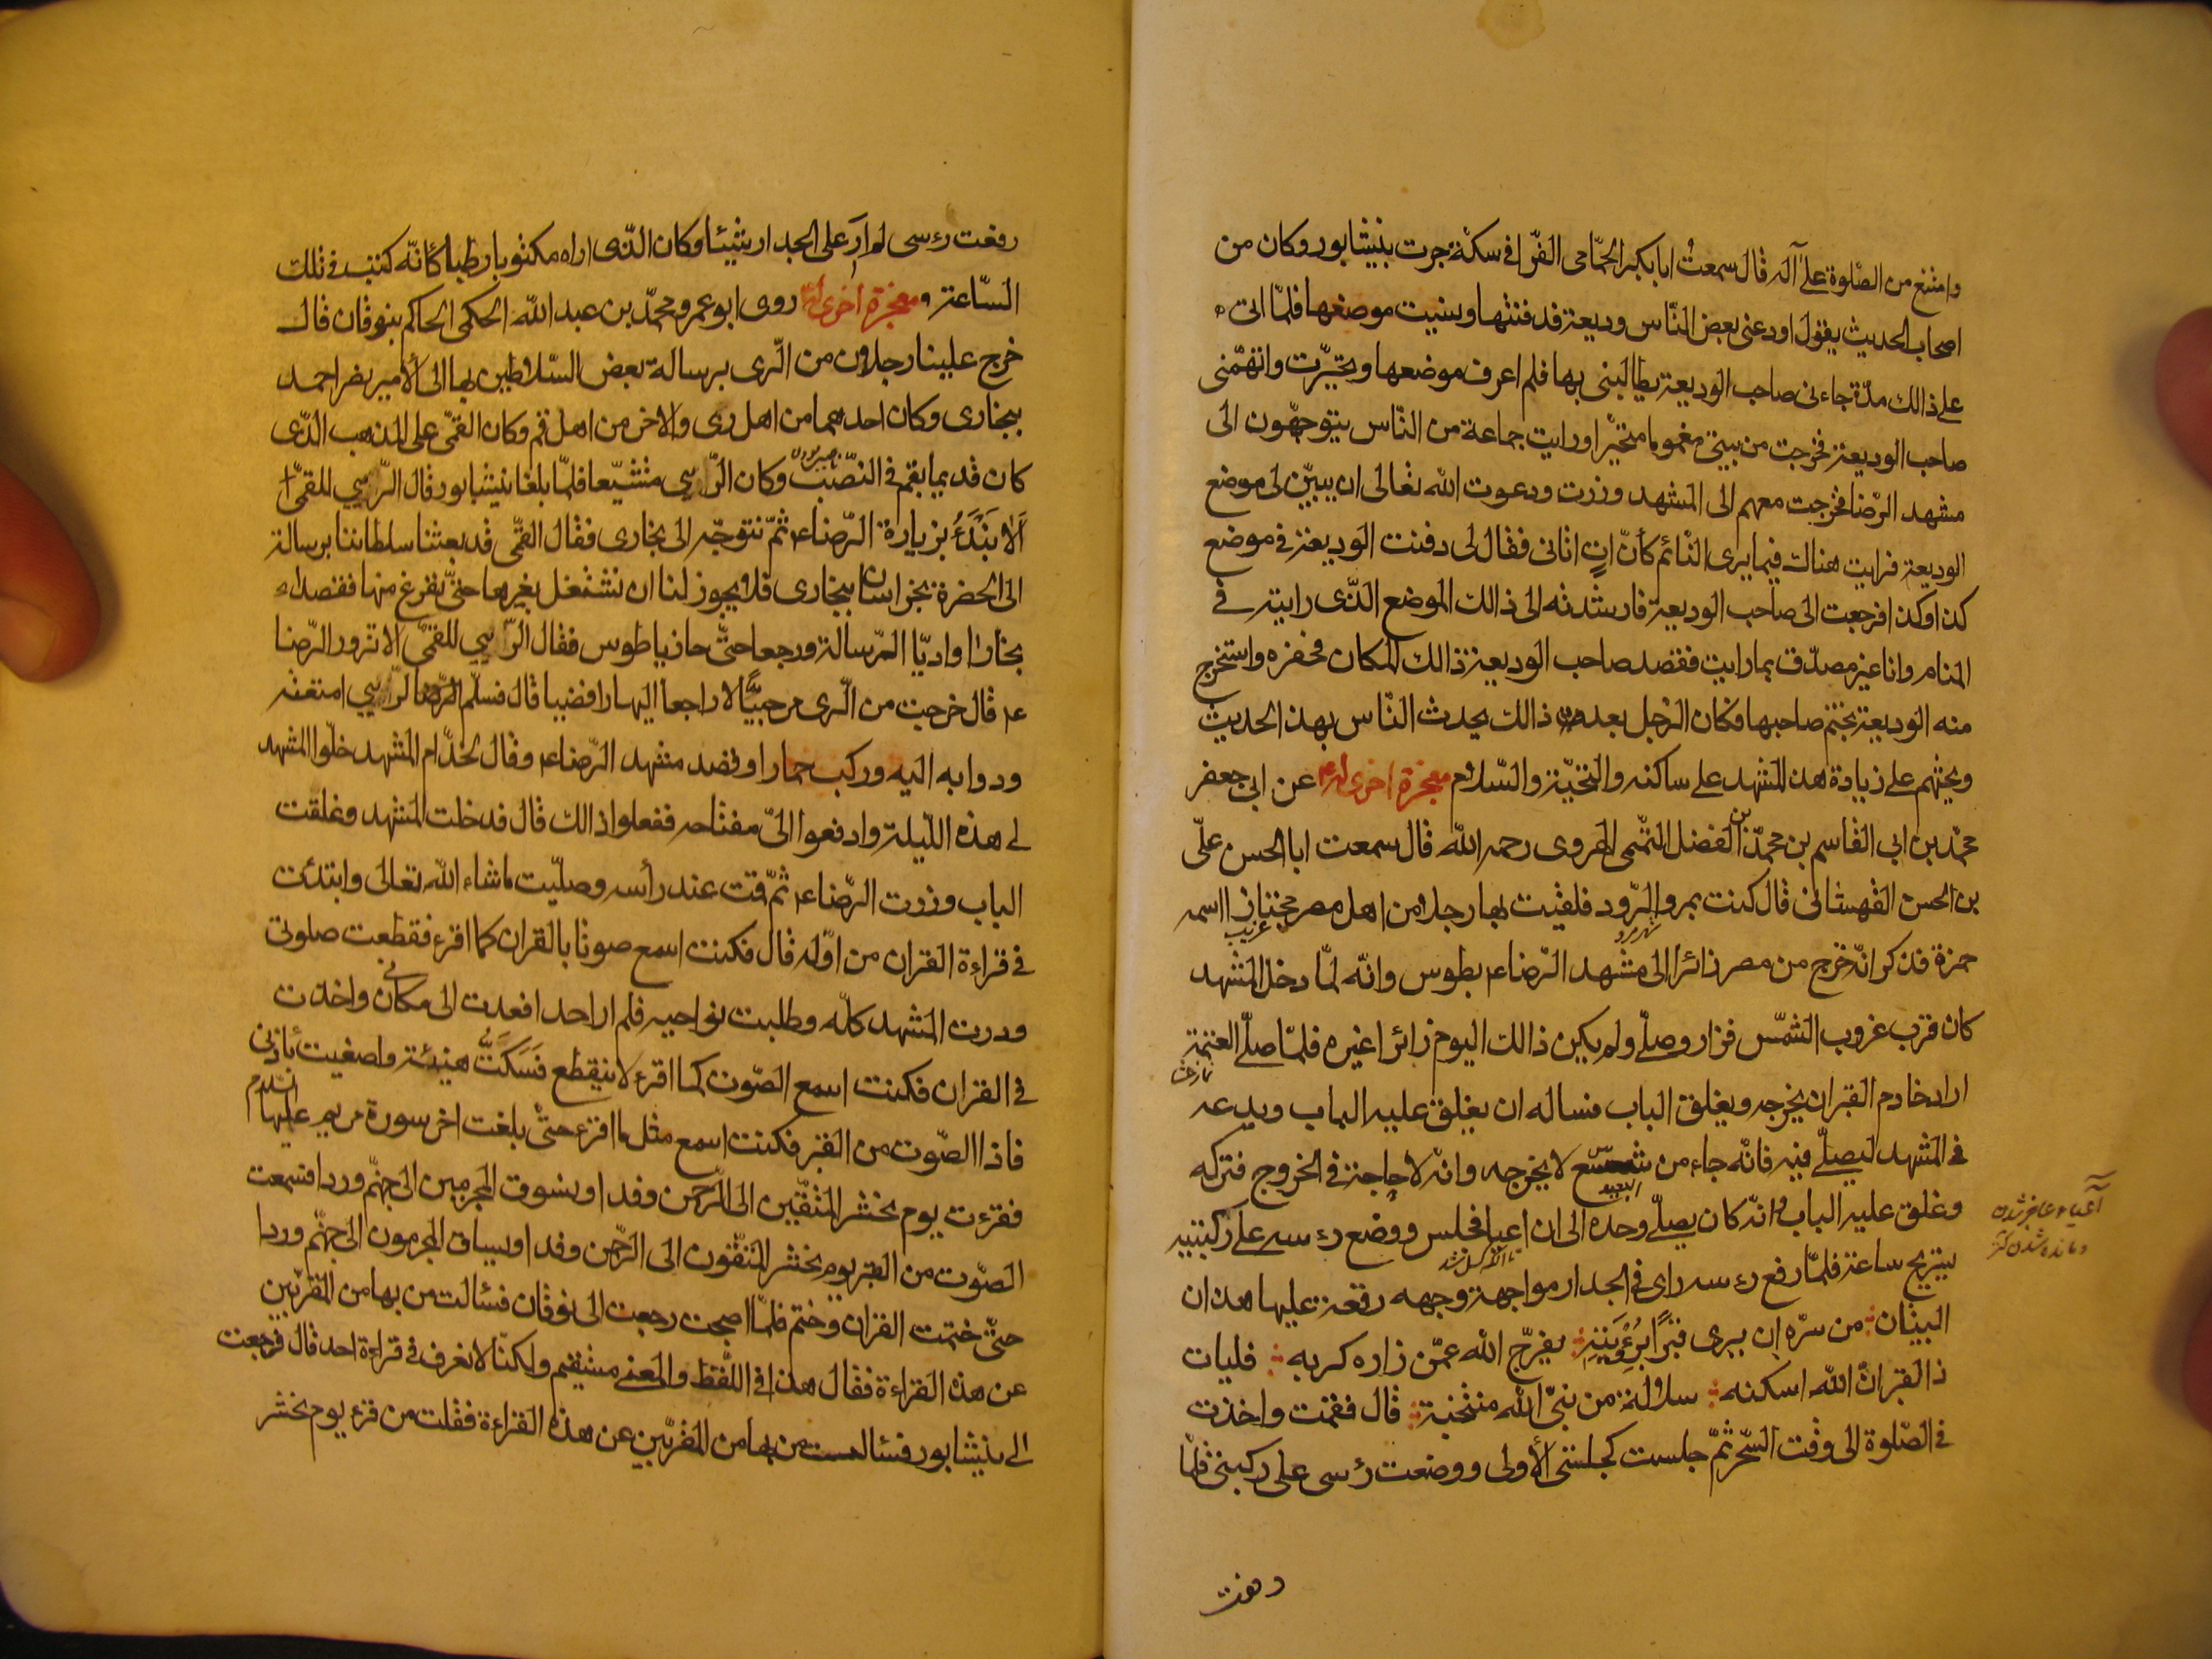 وامتنع من الصّلوة علىٰ آله قال سمعتُ ابا بكر الحمّامى الفرّا فى سكّة جرت بنيشابور وكان من
اصحاب الحديث يقول اودعنى بعض النّاس وديعة فدفنتها ونسيت موضعها فلمّا اتى
على ذالك مدّة جاءنى صاحب الوديعة يطالبنى بها فلم اعرف موضعها وتحيّرت واتهمّنى
صاحب الوديعة فخرجت من بيتى مغموما متحيّرا ورايت جماعة من النّاس يتوجّهون الى
مشهد الرّضا فخرجت معهم الى المشهد وزرت ودعوت الله تعالى ان يبيّن لى موضع
الوديعة فرايت هناك فيما يرى النّائم كأنّ اتٍ اتانى فقال لى دفنت الوديعة فى موضع
كذا وكذا فرجعت الى صاحب الوديعة فارشدته الى ذالك الموضع الذّى رايته فى
المنام وانا غير مصدّق بما رايت فقصد صاحب الوديعة ذالك المكان فحفره واستخرج
منه الوديعة بختم صاحبها فكان الرّجل بعد ذالك يحدث النّاس بهذا الحديث
ويحثهم على زيادة هذا المشهد على ساكنه والتحيّة والسّلام معجزة اخرى له عن ابى جعفر
محمّد بن ابى القاسم بن محمّد بن الفضل التّمى الهروى رحمه الله قال سمعت ابا الحسن علىّ
بن الحسن القهستانى قال كنت بمرو الرّود فلقيت بها رجلا من اهل مصر مجتازا اسمه
حمزة فذكر انّه خرج من مصر زائرا الى مشهد الرّضاء بطوس وانّه لمّا دخل المشهد
كان قرب غروب الشّمس فزار وصلّى ولم يكن ذالك اليوم زائرا غيره فلمّا صلّى العتمة
اراد خادم القبر ان يخرجه ويغلق الباب فساله ان يغلق عليه الباب ويدعه
فى المشهد ليصلّى فيه فانّه جاء من شسع لا يخرجه وانّه لا حاجة فى الخروج فتركه
البعيد
وغلق عليه الباب وانّه كان يصلّى وحده الى ان اعيا فجلس ووضع رءسه على ركبتيه
يتريح ساعة فلمّا رفع رءسه راى فى الجدار مواجهة وجهه رقعة عليها هذان
البيتان من سرّه ان يرى قبرًا برُءْوِيَتِه يفرّج الله عمّن زاره كربه فليات
ذا القبر انّ الله اسكنه سلالة من نبىّ الله منتخبة قال فقمت واخذت
فى الصّلوة الى وقت السّحر ثمّ جلست كجلستى الأولى ووضعت رءسى على ركبتى فلمّا
آعياء عاجز شدن
رفعت رءسى لم ارَ على الجدار شيئا وكان الذّى اراه مكتوبا رطبا كأنّه كتب فى تلك
السّاعة ومعجزة اخرى له روى ابو عمرو محمّد بن عبد الله الحكمى الحاكم بنوقان قال
خرج علينا رجلان من الرّى برسالة بعض السّلاطين بها الى الأمير نصر احمد
ببخارى وكان احدهما من اهل رى والاخر من اهل قم وكان القمّى على المذهب الذّى
كان قديما بقم فى النصّب وكان الرّاسى متشيّعا فلمّا بلغا بنيشابور قال الرّاسى للقمّى
اَلا نَبْدَءُ بزيارة الرّضاء ثمّ نتوجّه الى بخارى فقال القمّى قد بعثنا سلطاننا برسالة
الى الحضرة بخراسان ببخارى فلا يجوز لنا ان نشتغل بغيرها حتّى نفرغ منها فقصداء
بخارا واديّا الرّسالة ورجعا حتّى حاذيا طوس فقال الرّاسى للقمّى الا تزور الرّضا
ء قال خرجت من الرّى مرجئيًّا لا راجعا اليها رافضيا قال فسلّم الرّاسى امتعته
ودوابه اليه وركب حمارا وقصد مشهد الرّضاء وقال لخدّام المشهد خلّوا المشهد
لى هذه اللّيلة وادفعوا الىّ مفتاحه ففعلوا ذالك قال فدخلت المشهد وغلقت
الباب وزرت الرّضاء ثمّ قمت عند رأسه وصلّيت ماشاء الله تعالى وابتدئت
فى قراءة القران من اوّله قال فكنت اسمع صوتا بالقران كما اقرء فقطعت صلوتى
ودرت المشهد كلّه وطلبت نواحيه فلم ار احدا فعدت الى مكانى واخذت
فى القران فكنت اسمع الصّوت كما اقرء لا ينقطع فَسَكَتُّ هنيئة واصغيت باذنى
فاذا الصّوت من القبر فكنت اسمع مثل ما اقرء حتّى بلغت اخر سورة مريم عليها السّلام
فقرءت يوم نحشر المتّقين الى الرّحمن وفدا ونسوق المجرمين الى جهنّم وردا فسمعت
الصّوت من القبر يوم يحشر المتّقون الى الرّحمن وفدا ويساق المجرمون الى جهنّم وردا
حتّى ختمت القران وختم فلمّا اصبحت رجعت الى نوقان فسئالت من بها من المقريّين
عن هذه القراءة فقال هذا فى اللّفظ والمعنى مستقيم ولكنّا لا نعرف فى قراءة احد قال فرجعت
الى بنيشابور فسئالت من بها من المقريّين عن هذه القراءة فقلت من قرء يوم يحشر